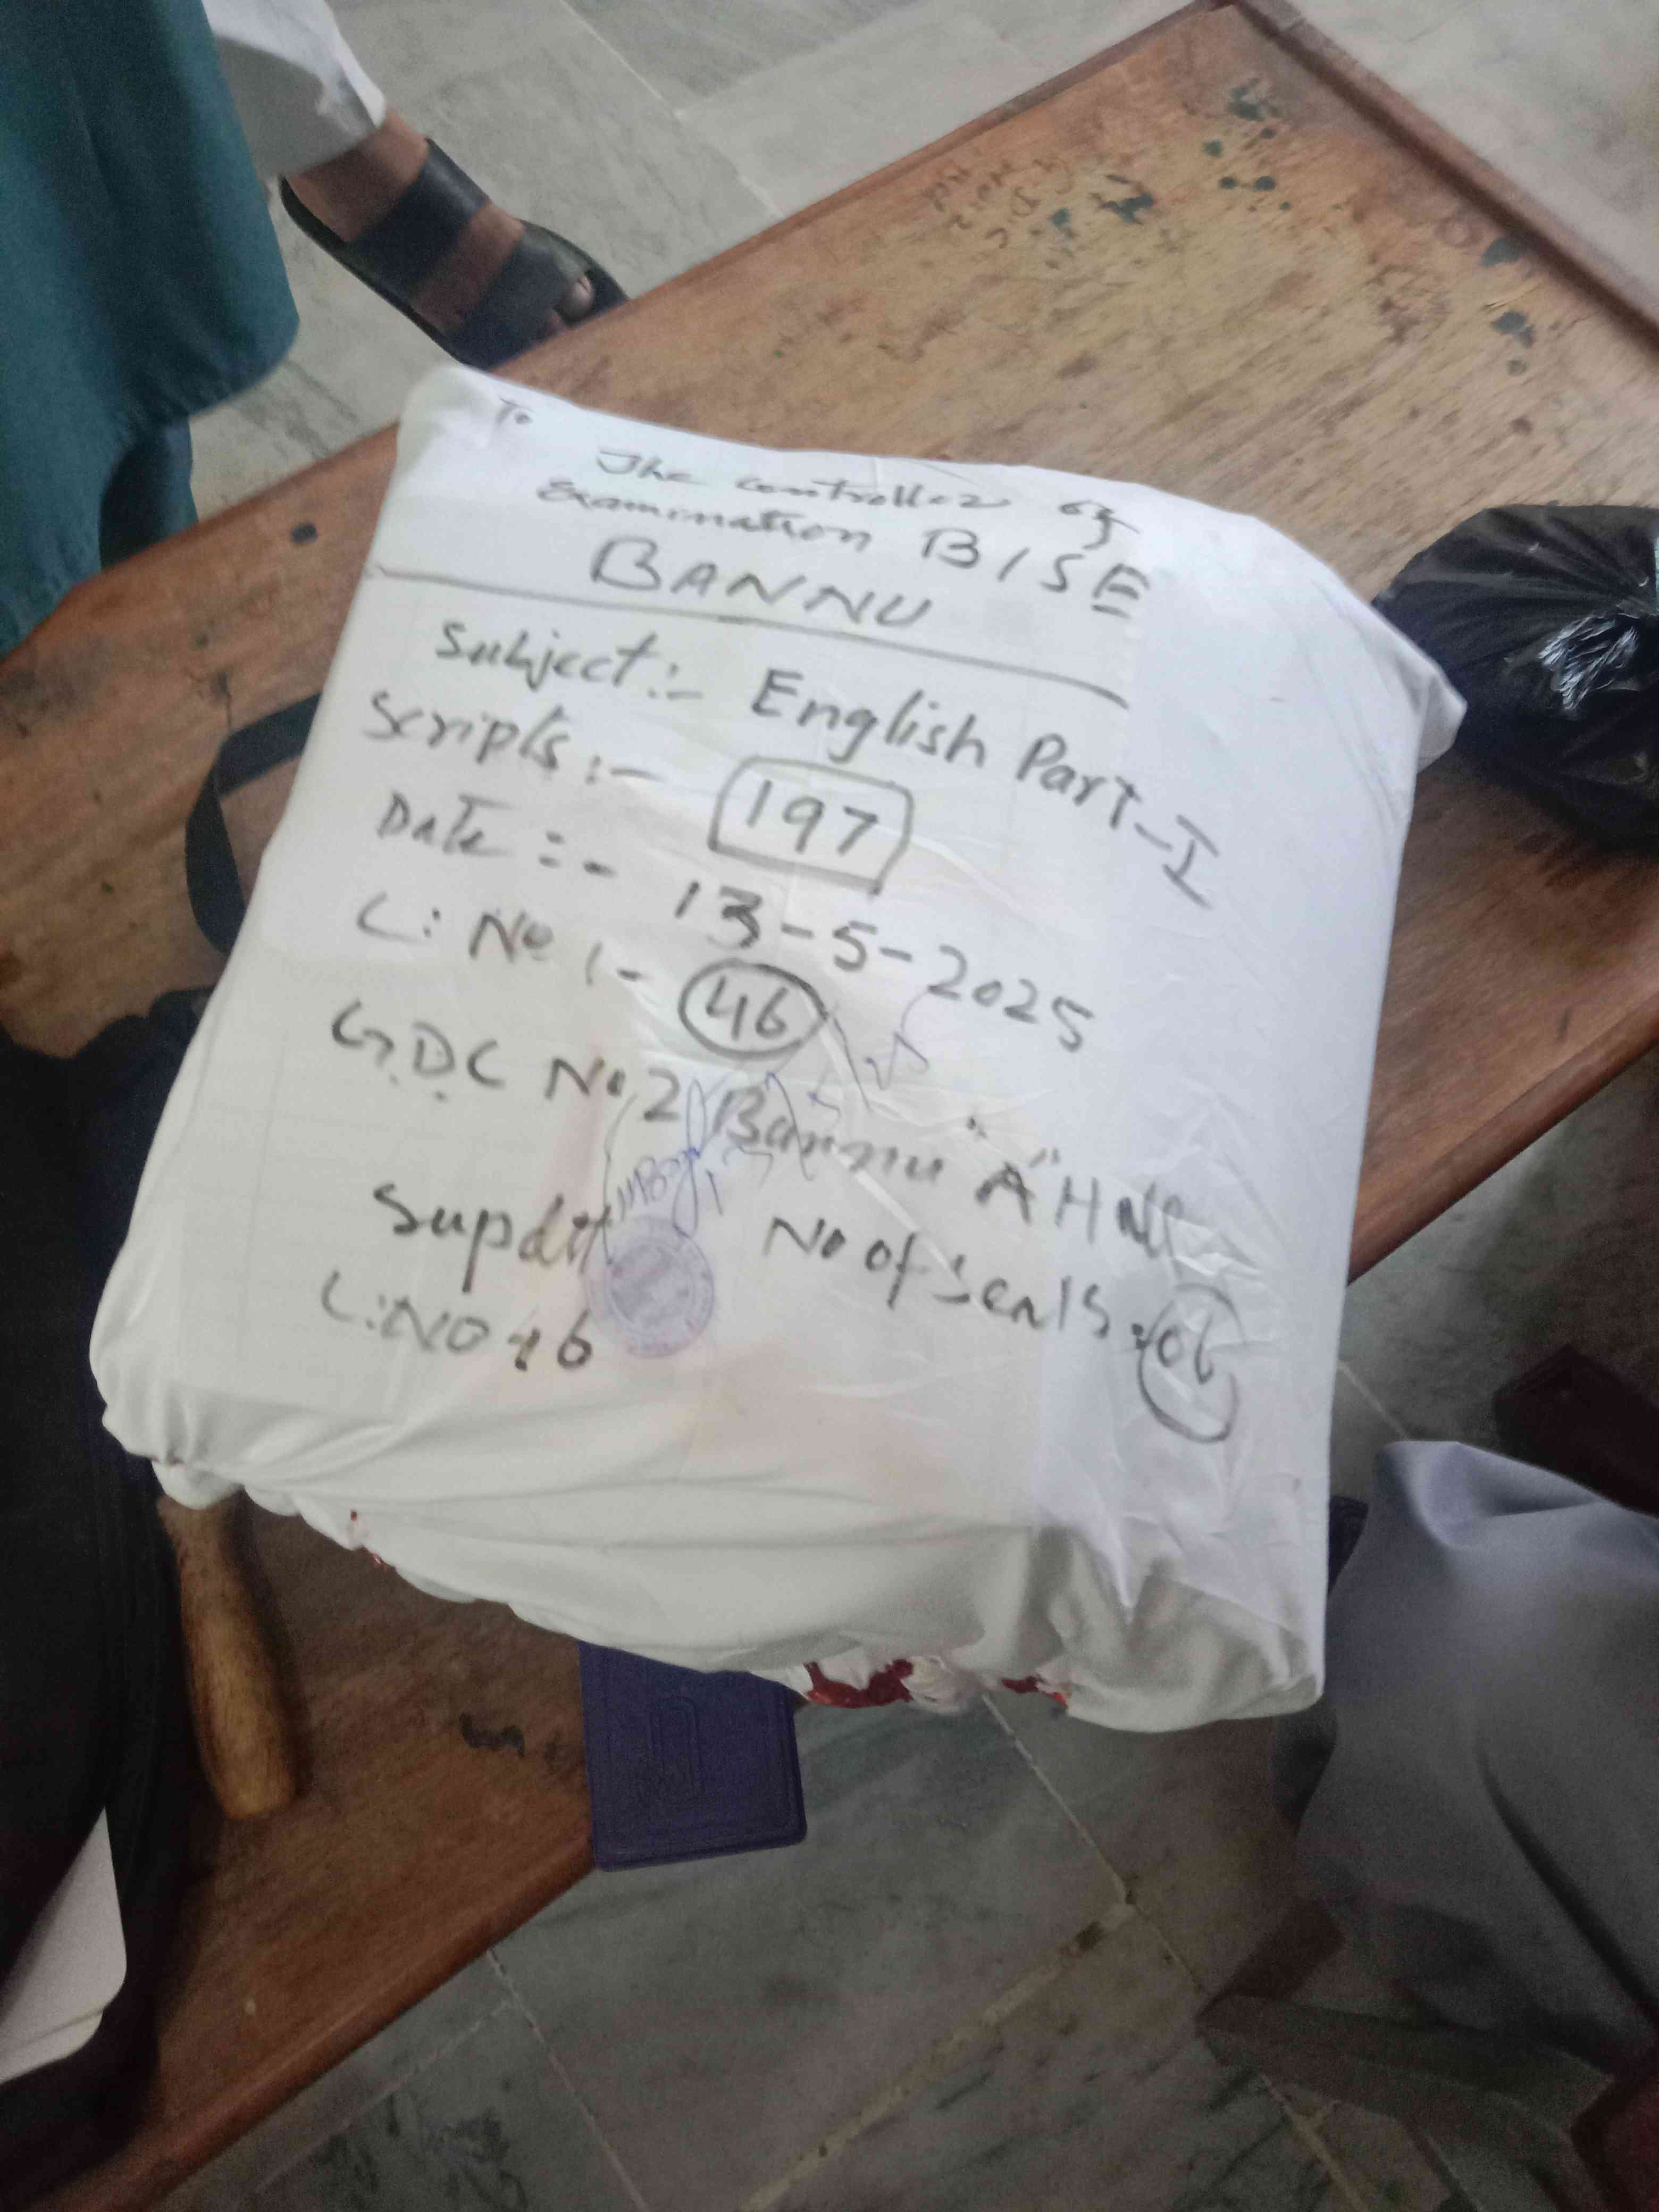 To
The controller of
Examination BISE
BANNU
Subject:- English Part-I
Scripts:- 197
Date:- 13-5-2025
C: No:- 46
G.DC No 2 Bannu "A" H
Supdtt No of Seals: 06
C:NO 46